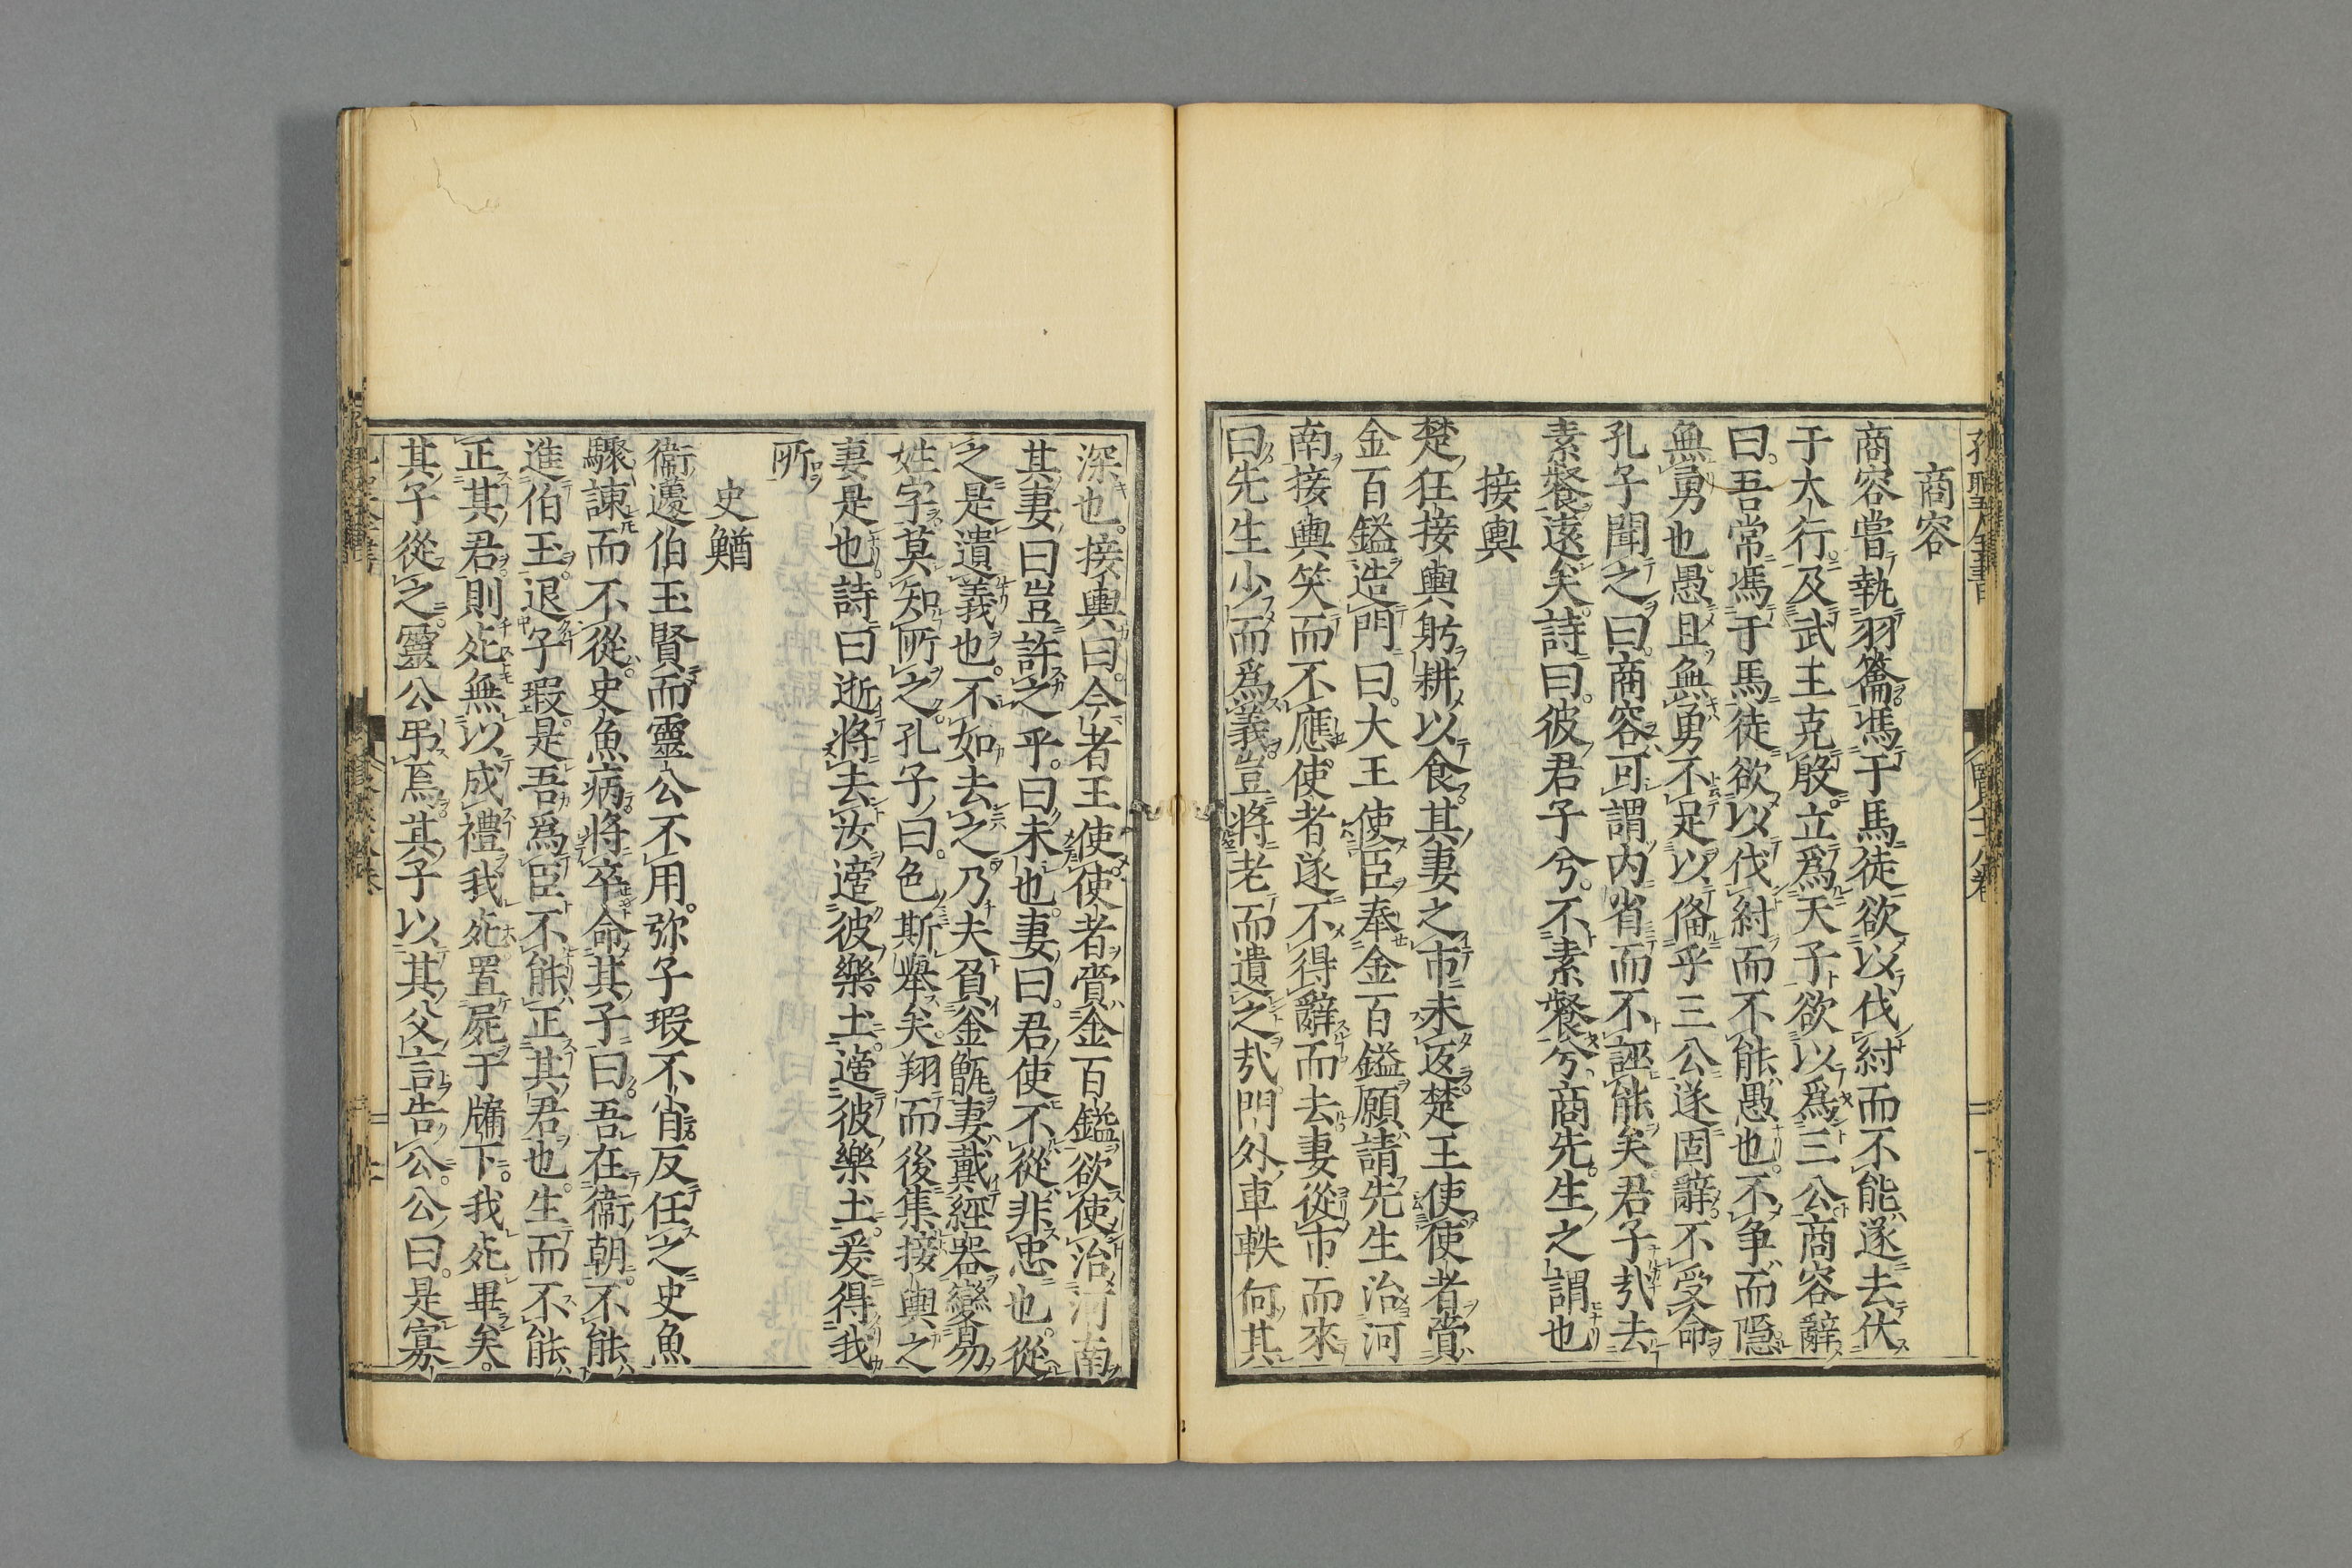 商容
商容嘗執羽籥馮于馬徒欲以伐紂而不能遂去伏
于大行及武王克殷立爲天子欲以爲三公商容辭
曰吾常馮于馬徒欲以伐紂而不能愚也不争而隠
無勇也愚且無勇不足以俻乎三公遂固辭不受命
孔子聞之曰商容可謂内省而不誣能矣君子㢤去
素餐遠矣詩曰彼君子兮不素餐兮商先生之謂也
接輿
楚狂接輿躬耕以食其妻之市未返楚王使使者賫
金百鎰造門曰大王使臣奉金百鎰願請先生治河
南接輿笑而不應使者遂不得辭而去妻從市而來
曰先生少而爲義豈將老而遺之㢤門外車軼何其
深也接輿曰今者王使使者賫金百鎰欲使治河南
其妻曰豈許之乎曰未也妻曰君使不從非忠也從
之是遺義也不如去之乃夫負釜甑妻戴經器變易
姓字莫知所之孔子曰色斯舉矣翔而後集接輿之
妻是也詩曰逝將去汝適彼樂土適彼樂土爰得我
所
史鰌
衞蘧伯玉賢而靈公不用弥子瑕不肖反任之史魚
驟諌而不從史魚病將卒命其子曰吾在衞朝不能
進伯玉退子瑕是吾爲臣不能正其君也生而不能
正其君則死無以成禮我死置屍于牖下我死畢矣
其子從之靈公弔焉其子以其父言告公公曰是寡